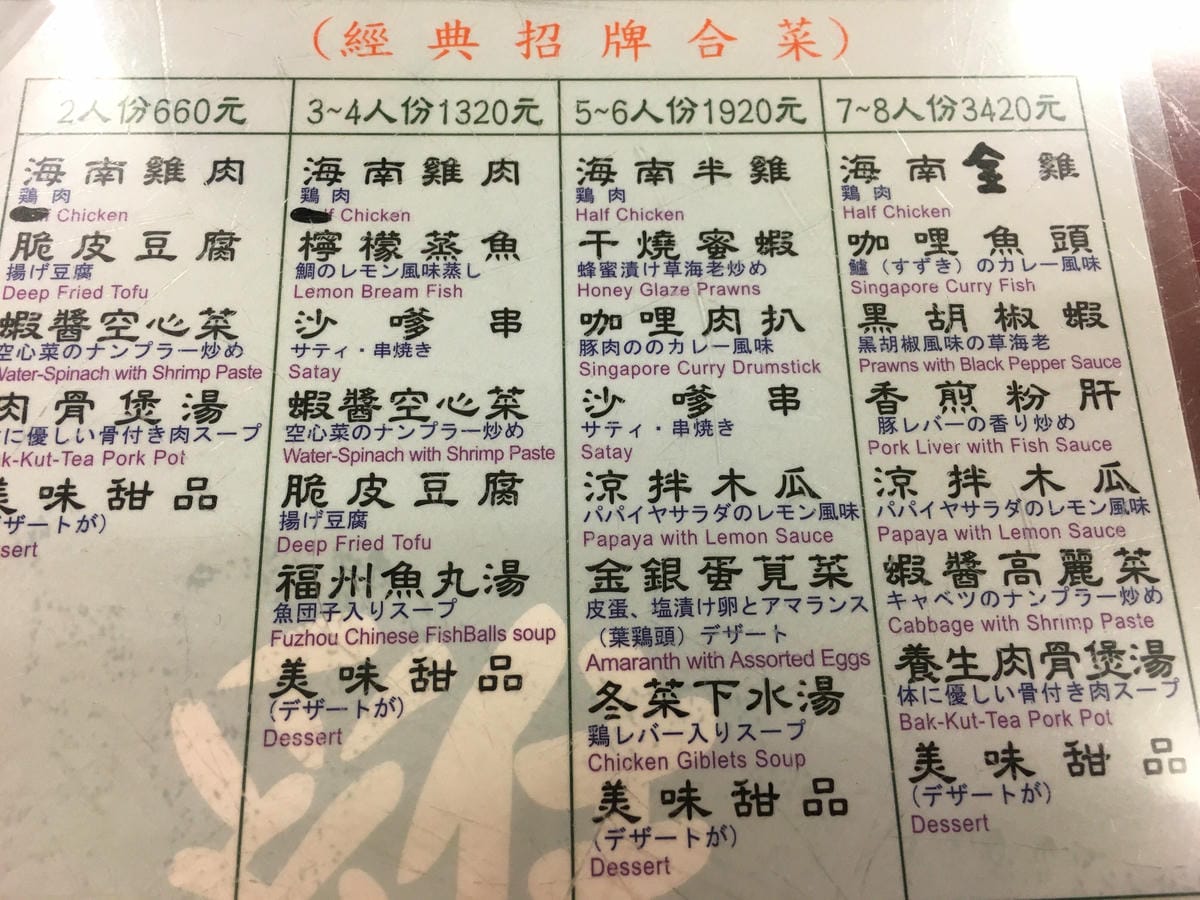 （經典招牌合菜）
2人份660元
海南雞肉
鶏肉
Chicken
脆皮豆腐
揚げ豆腐
Deep Fried Tofu
蝦醬空心菜
空心菜のナンプラー炒め
Water-Spinach with Shrimp Paste
肉骨煲湯
に優しい骨付き肉スープ
ak-Kut-Tea Pork Pot
美味甜品
デザートが）
ssert
3~4人份1320元
海南雞肉
鶏肉
f Chicken
檸檬蒸魚
鯛のレモン風味蒸し
Lemon Bream Fish
沙嗲串
サティ・串焼き
Satay
蝦醬空心菜
空心菜のナンプラー炒め
Water-Spinach with Shrimp Paste
脆皮豆腐
揚げ豆腐
Deep Fried Tofu
福州魚丸湯
魚団子入りスープ
Fuzhou Chinese FishBalls soup
美味甜品
（デザートが）
Dessert
5~6人份1920元
海南半雞
鶏肉
Half Chicken
干燒蜜蝦
蜂蜜漬け草海老炒め
Honey Glaze Prawns
咖哩肉扒
豚肉ののカレー風味
Singapore Curry Drumstick
沙嗲串
サティ・串焼き
Satay
涼拌木瓜
パパイヤサラダのレモン風味
Papaya with Lemon Sauce
金銀蛋莧菜
皮蛋、塩漬け卵とアマランス
（葉鶏頭）デザート
Amaranth with Assorted Eggs
冬菜下水湯
鶏レバー入りスープ
Chicken Giblets Soup
美味甜品
（デザートが）
Dessert
7~8人份3420元
海南全雞
鶏肉
Half Chicken
咖哩魚頭
鱸（すずき）のカレー風味
Singapore Curry Fish
黑胡椒蝦
黑胡椒風味の草海老
Prawns with Black Pepper Sauce
香煎粉肝
豚レバーの香り炒め
Pork Liver with Fish Sauce
涼拌木瓜
パパイヤサラダのレモン風味
Papaya with Lemon Sauce
蝦醬高麗菜
キャベツのナンプラー炒め
Cabbage with Shrimp Paste
養生肉骨煲湯
体に優しい骨付き肉スープ
Bak-Kut-Tea Pork Pot
美味甜品
（デザートが）
Dessert